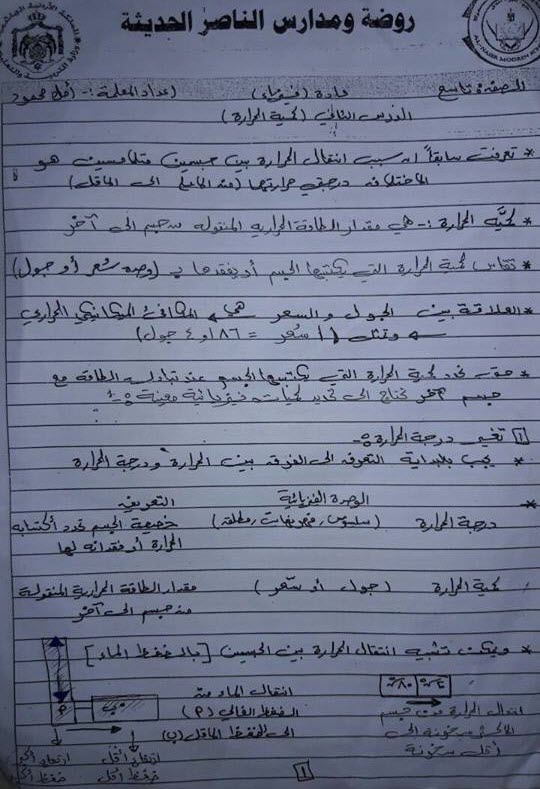 روضة ومدارس الناصر الحديثة
الصف: تاسع مادة (فيزياء) إعداد المعلمة :- أمل محمود
الدرس الثاني (كمية الحرارة)
* تعرفت سابقاً أن سبب انتقال الحرارة بين جسمين متلامسين هو
اختلاف درجتي حرارتهما (من الأعلى الى الأقل)
* كمية الحرارة :- هي مقدار الطاقة الحرارية المنقوله من جسم الى آخر
* تقاس كمية الحرارة التي يكتسبها الجسم أو يفقدها بـ (وحده سُعر أو جول)
* العلاقة بين الجول والسعر هي المكافئ الميكانيكي الحراري
وتمثل (١ سُعر = ٤,١٨٦ جول)
* حتى نحدد كمية الحرارة التي يكتسبها الجسم عند تبادله الطاقة مع
جسم آخر نحتاج الى تحديد كميات فيزيائية معينة :-
١ تغير درجة الحرارة :-
* يجب بالبداية التعرف الى الفرق بين الحرارة ودرجة الحرارة
* الوحدة الفيزيائية التعريف
درجة الحرارة (سلسيوس، فهرنهايت، مطلقة) خاصية الجسم تحدد اكتسابه
الحرارة أو فقدانه لها
كمية الحرارة (جول أو سُعر) مقدار الطاقة الحرارية المنقولة
من جسم الى آخر
* ويمكن تشبيه انتقال الحرارة بين الجسمين [بالضغط الماء]
انتقال الحرارة من جسم
الأكثر سخونة الى
أقل سخونة
انتقال الماء من
الضغط العالي (P)
الى الضغط الأقل (ب)
P
ب
ارتفاع أقل
ضغط أقل
ارتفاع أكبر
ضغط أكبر
١